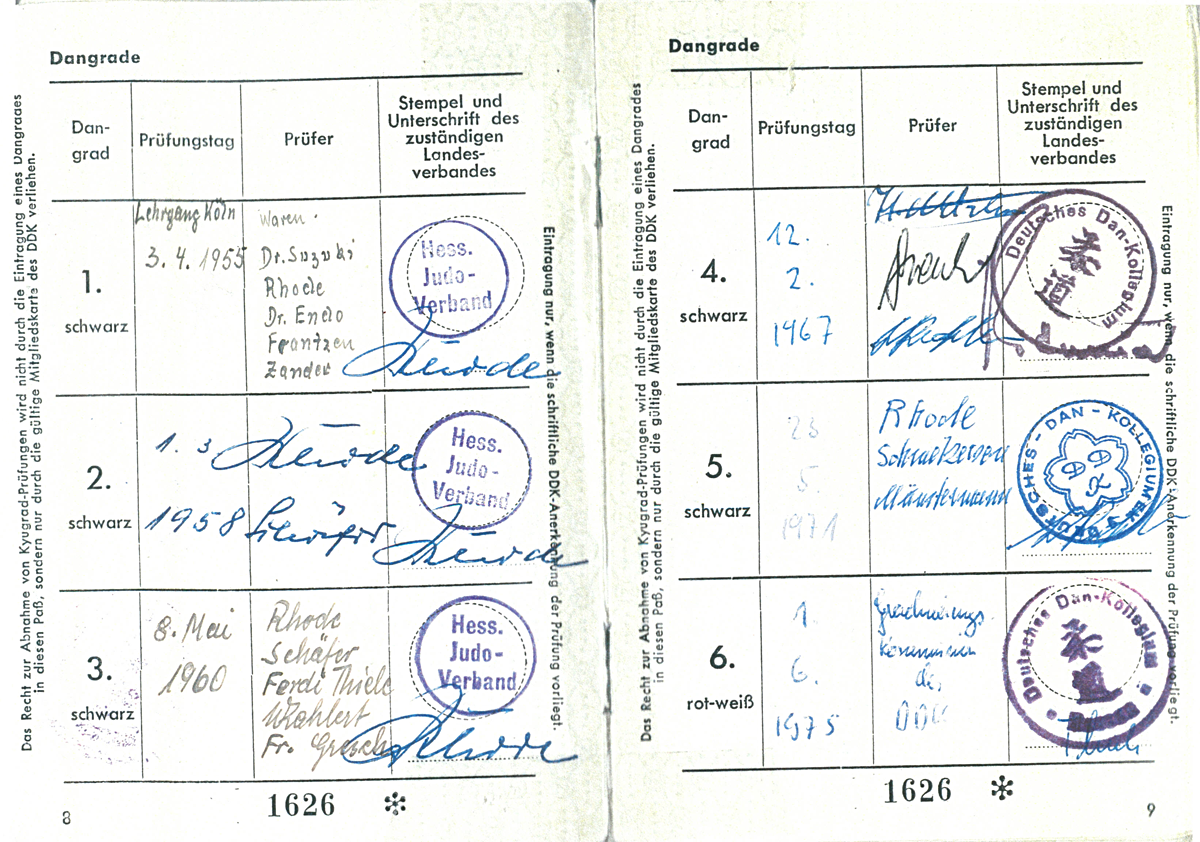 Dangrade
Dan-
grad
Prüfungstag
Prüfer
Stempel und
Unterschrift des
zuständigen
Landes-
verbandes
1.
schwarz
Lehrgang Köln
3. 4. 1955
Waren.
Dr. Suzuki
Rhode
Dr. Endo
Frantzen
Zander
Hess.
Judo-
Verband
2.
schwarz
1. 3
1958
Schäfer
Hess.
Judo-
Verband
3.
schwarz
8. Mai
1960
Rhode
Schäfer
Ferdi Thiele
Wohlert
Fr.
Hess.
Judo-
Verband
Rhode
Das Recht zur Abnahme von Kyugrad-Prüfungen wird nicht durch die Eintragung eines Dangrades
in diesen Paß, sondern nur durch die gültige Mitgliedskarte des DDK verliehen.
Eintragung nur, wenn die schriftliche DDK-Anerkennung der Prüfung vorliegt.
1626 *
8
Dangrade
Dan-
grad
Prüfungstag
Prüfer
Stempel und
Unterschrift des
zuständigen
Landes-
verbandes
4.
schwarz
12.
2.
1967
Deutsches Dan-Kollegium
柔道
5.
schwarz
23
5.
1971
Rhode
DEUTSCHES-DAN-KOLLEGIUM
DDK
6.
rot-weiß
1.
6.
1975
Graduierungs
kommission
des
DDK
Deutsches Dan-Kollegium
Das Recht zur Abnahme von Kyugrad-Prüfungen wird nicht durch die Eintragung eines Dangrades
in diesen Paß, sondern nur durch die gültige Mitgliedskarte des DDK verliehen.
Eintragung nur, wenn die schriftliche DDK-Anerkennung der Prüfung vorliegt.
1626 *
9